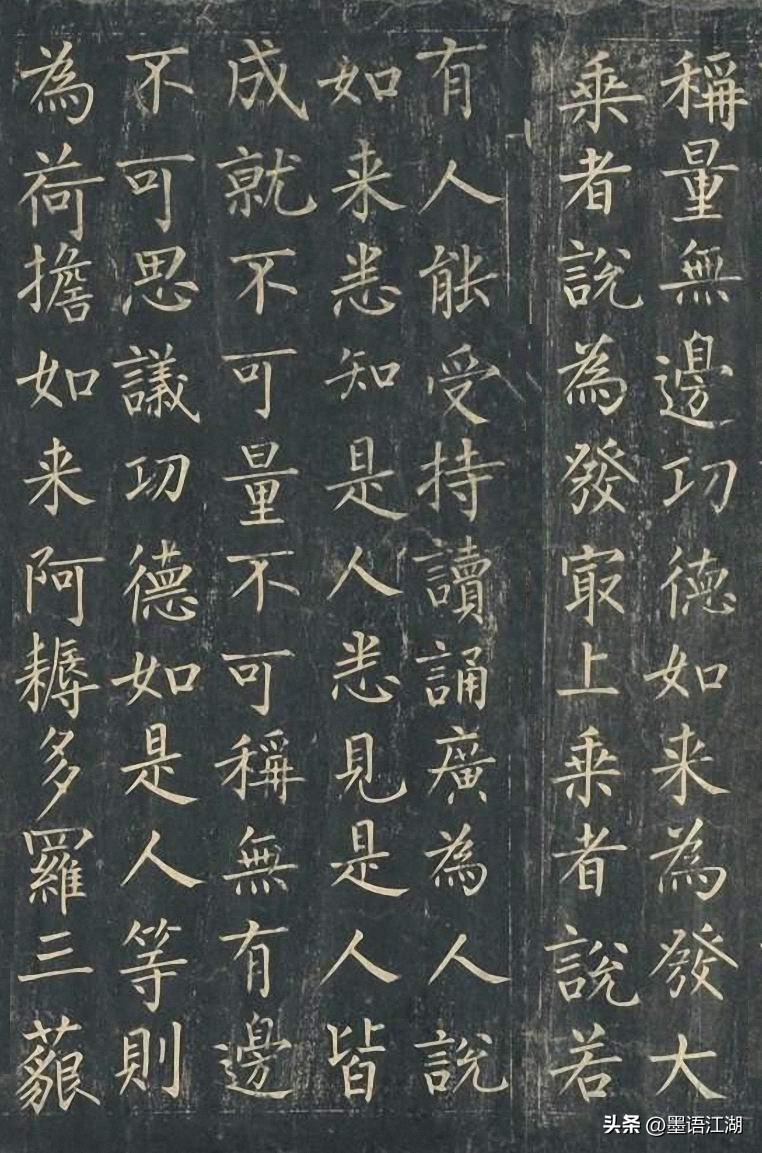 稱量無邊功德如来為發大
乘者說為發最上乘者說若
有人能受持讀誦廣為人說
如来悉知是人悉見是人皆
成就不可量不可稱無有邊
不可思議功德如是人等則
為荷擔如来阿耨多羅三藐
头条 @墨语江湖